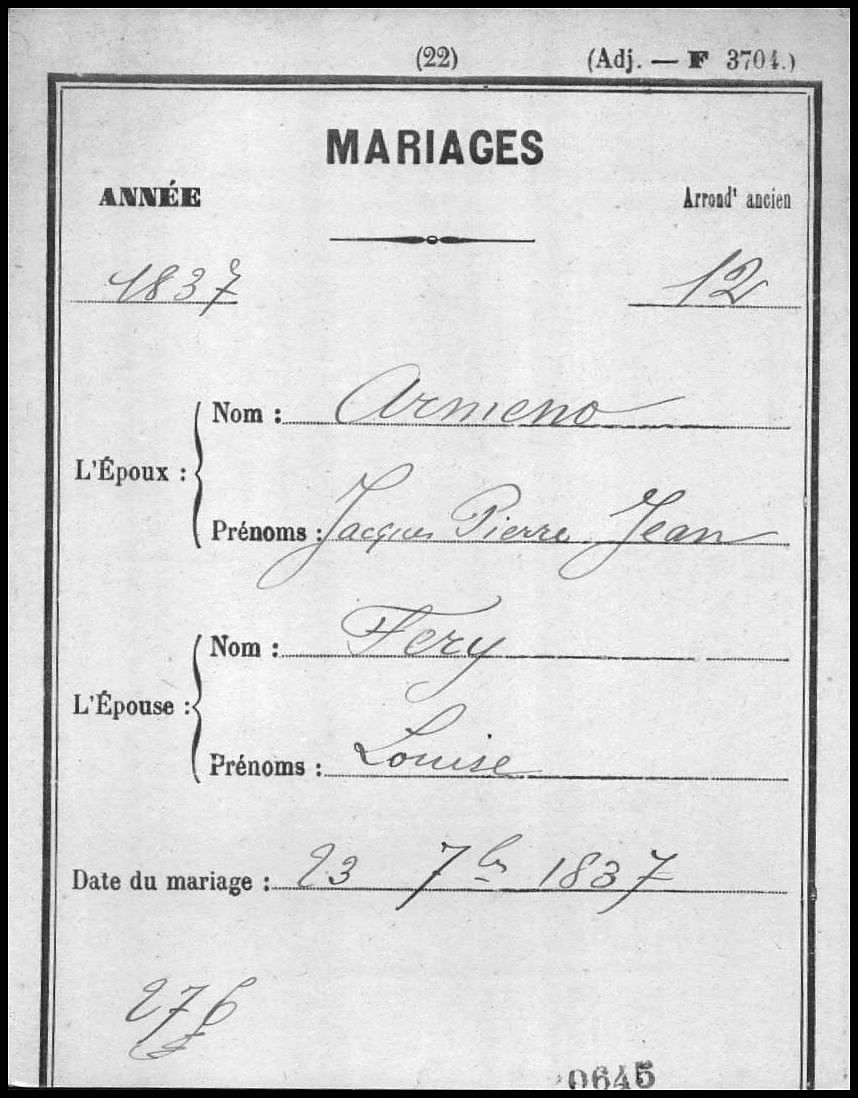 (22) (Adj. — F 3704.)
MARIAGES
ANNÉE Arrondt ancien
1837 12
L'Époux : Nom : Armeno
Prénoms : Jacques Pierre Jean
L'Épouse : Nom : Fery
Prénoms : Louise
Date du mariage : 23 7bre 1837
0645